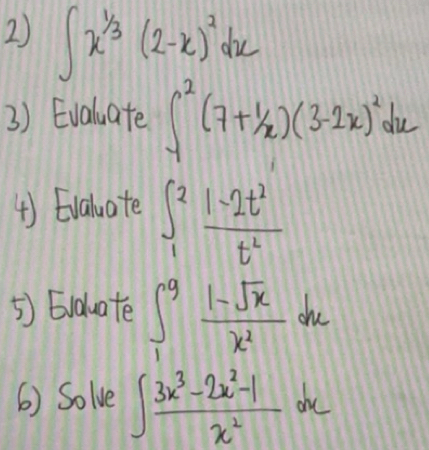 2) ∫ x^(1/3) (2-x)² dx
3) Evaluate ∫₁² (7+1/x)(3-2x)² dx
4) Evaluate ∫₁² (1-2t²)/t²
5) Evaluate ∫₁⁹ (1-√x)/x² dx
6) Solve ∫ (3x³-2x²-1)/x² dx